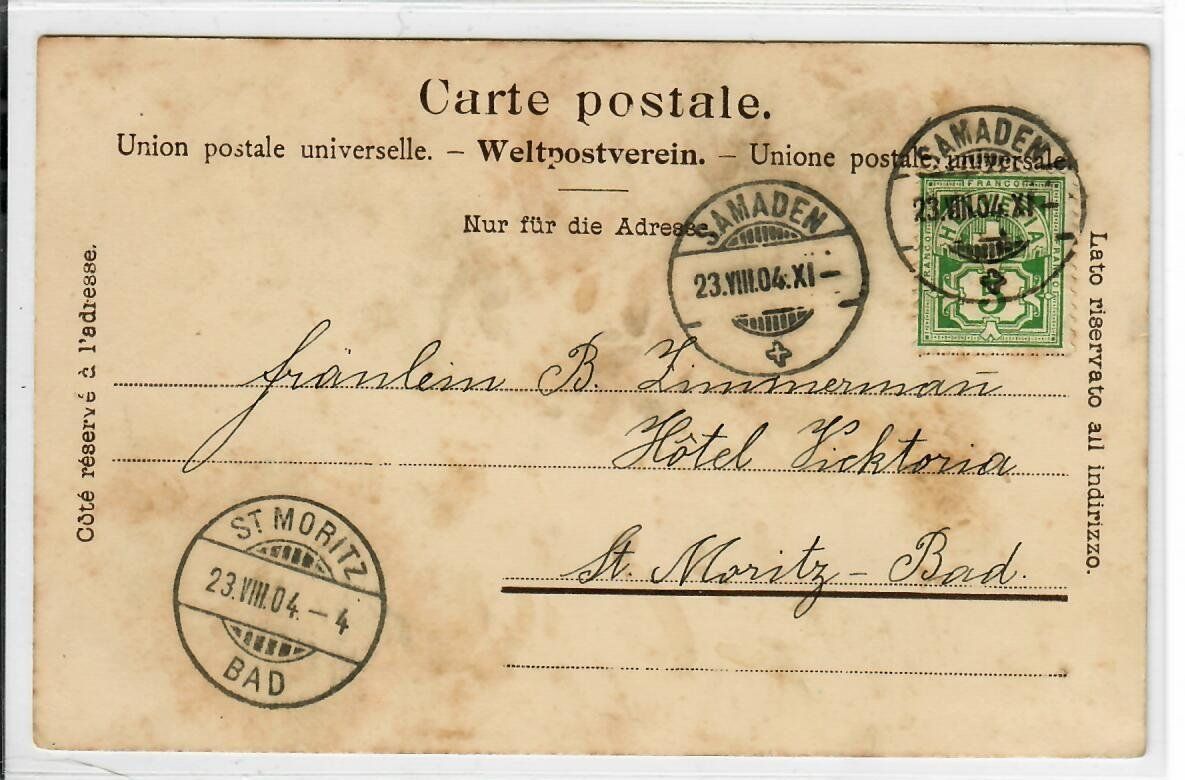 Carte postale.
Union postale universelle. – Weltpostverein. – Unione postale universale.
Nur für die Adresse.
Côté réservé à l'adresse.
Lato riservato all indirizzo.
SAMADEN
23.VIII.04.XI–
SAMADEN
23.VIII.04.XI–
FRANCO
HELVETIA
FRANCO
FRANCO
5
fräulein B. Zimmermañ
Hôtel Vicktoria
St. Moritz – Bad.
ST MORITZ
23.VIII.04.–4
BAD